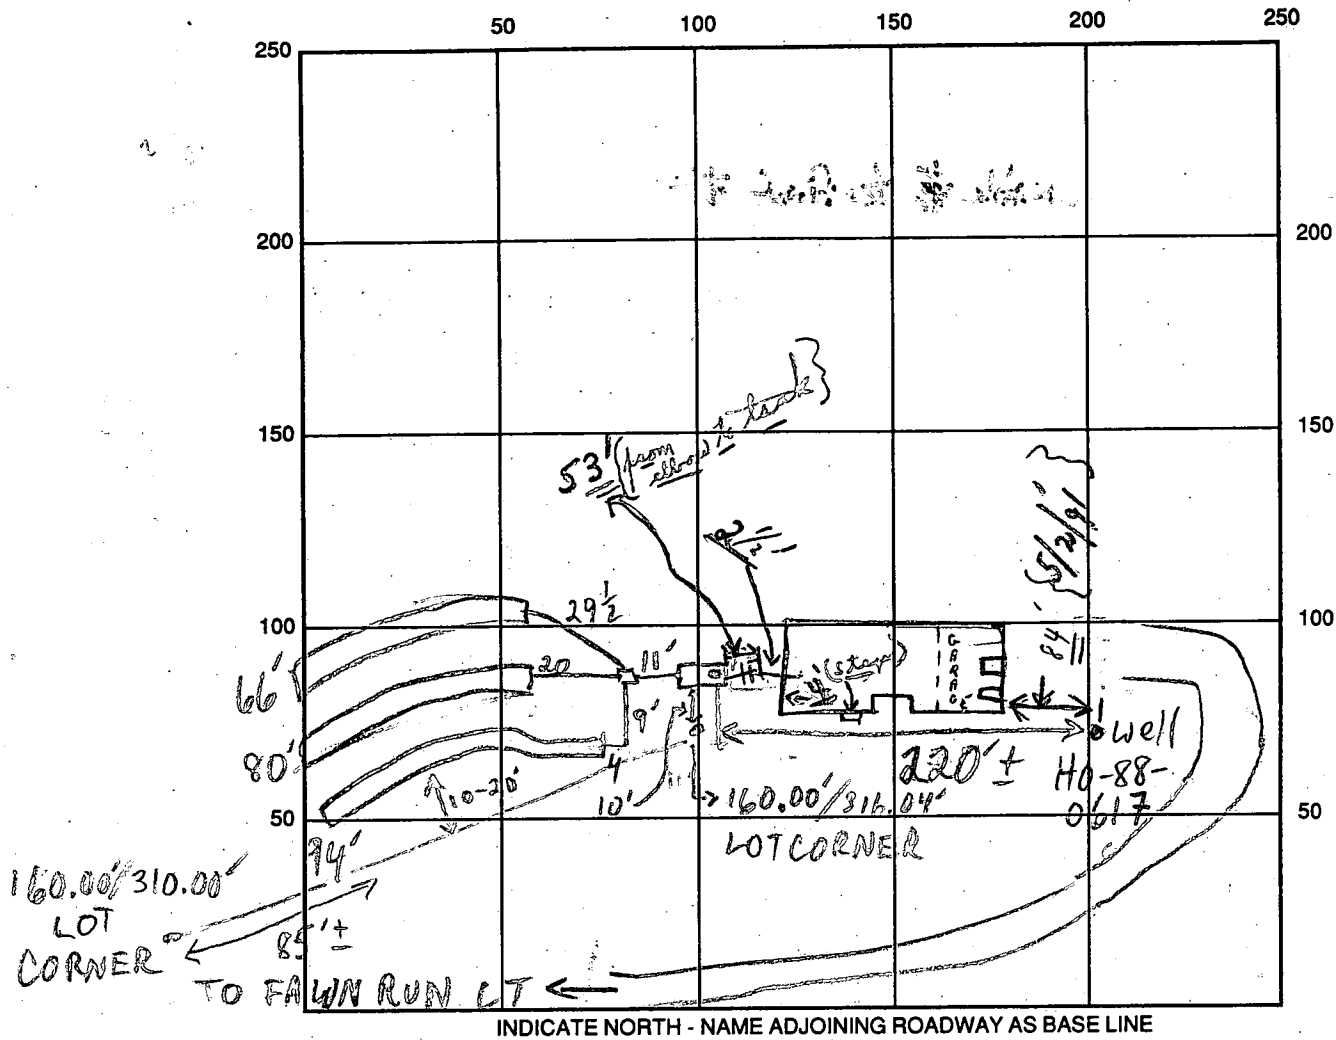 50 100 150 200 250
250
200 200
150 150
53' (from elbow to tank)
2 1/2'
{5/2/91}
84'
100 100
29 1/2
20
11'
4' (step)
GARAGE
66'
80'
94'
9'
4
10'
10-20'
220' ±
well
HO-88-
0617
50 50
160.00'/316.04'
LOT CORNER
160.00'/310.00'
LOT
CORNER
85' ±
TO FAWN RUN CT
INDICATE NORTH - NAME ADJOINING ROADWAY AS BASE LINE